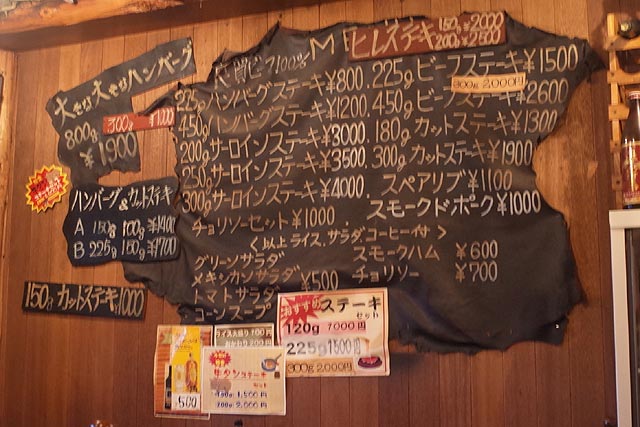 大きな大きなハンバーグ
800g
¥1900
300g ¥1000
ヒレステーキ 150g ¥2000
200g ¥2500
225g ハンバーグステーキ ¥800
450g ハンバーグステーキ ¥1200
200g サーロインステーキ ¥3000
250g サーロインステーキ ¥3500
300g サーロインステーキ ¥4000
チョリソーセット ¥1000
225g ビーフステーキ ¥1500
300g 2,000円
450g ビーフステーキ ¥2600
180g カットステーキ ¥1300
300g カットステーキ ¥1900
スペアリブ ¥1100
スモークドポーク ¥1000
<以上ライス、サラダ、コーヒー付>
グリーンサラダ
メキシカンサラダ ¥500
トマトサラダ
コーンスープ
スモークハム ¥600
チョリソー ¥700
ハンバーグ&カットステーキ
A 150g 100g ¥1400
B 225g 150g ¥1700
150g カットステーキ ¥1000
おすすめ ステーキ
セット
120g 1000円
225g 1500円
300g 2,000円
ライス大盛り 100円
おかわり 200円
牛タンステーキ
セット
150g 1,500円
200g 2,000円
¥500